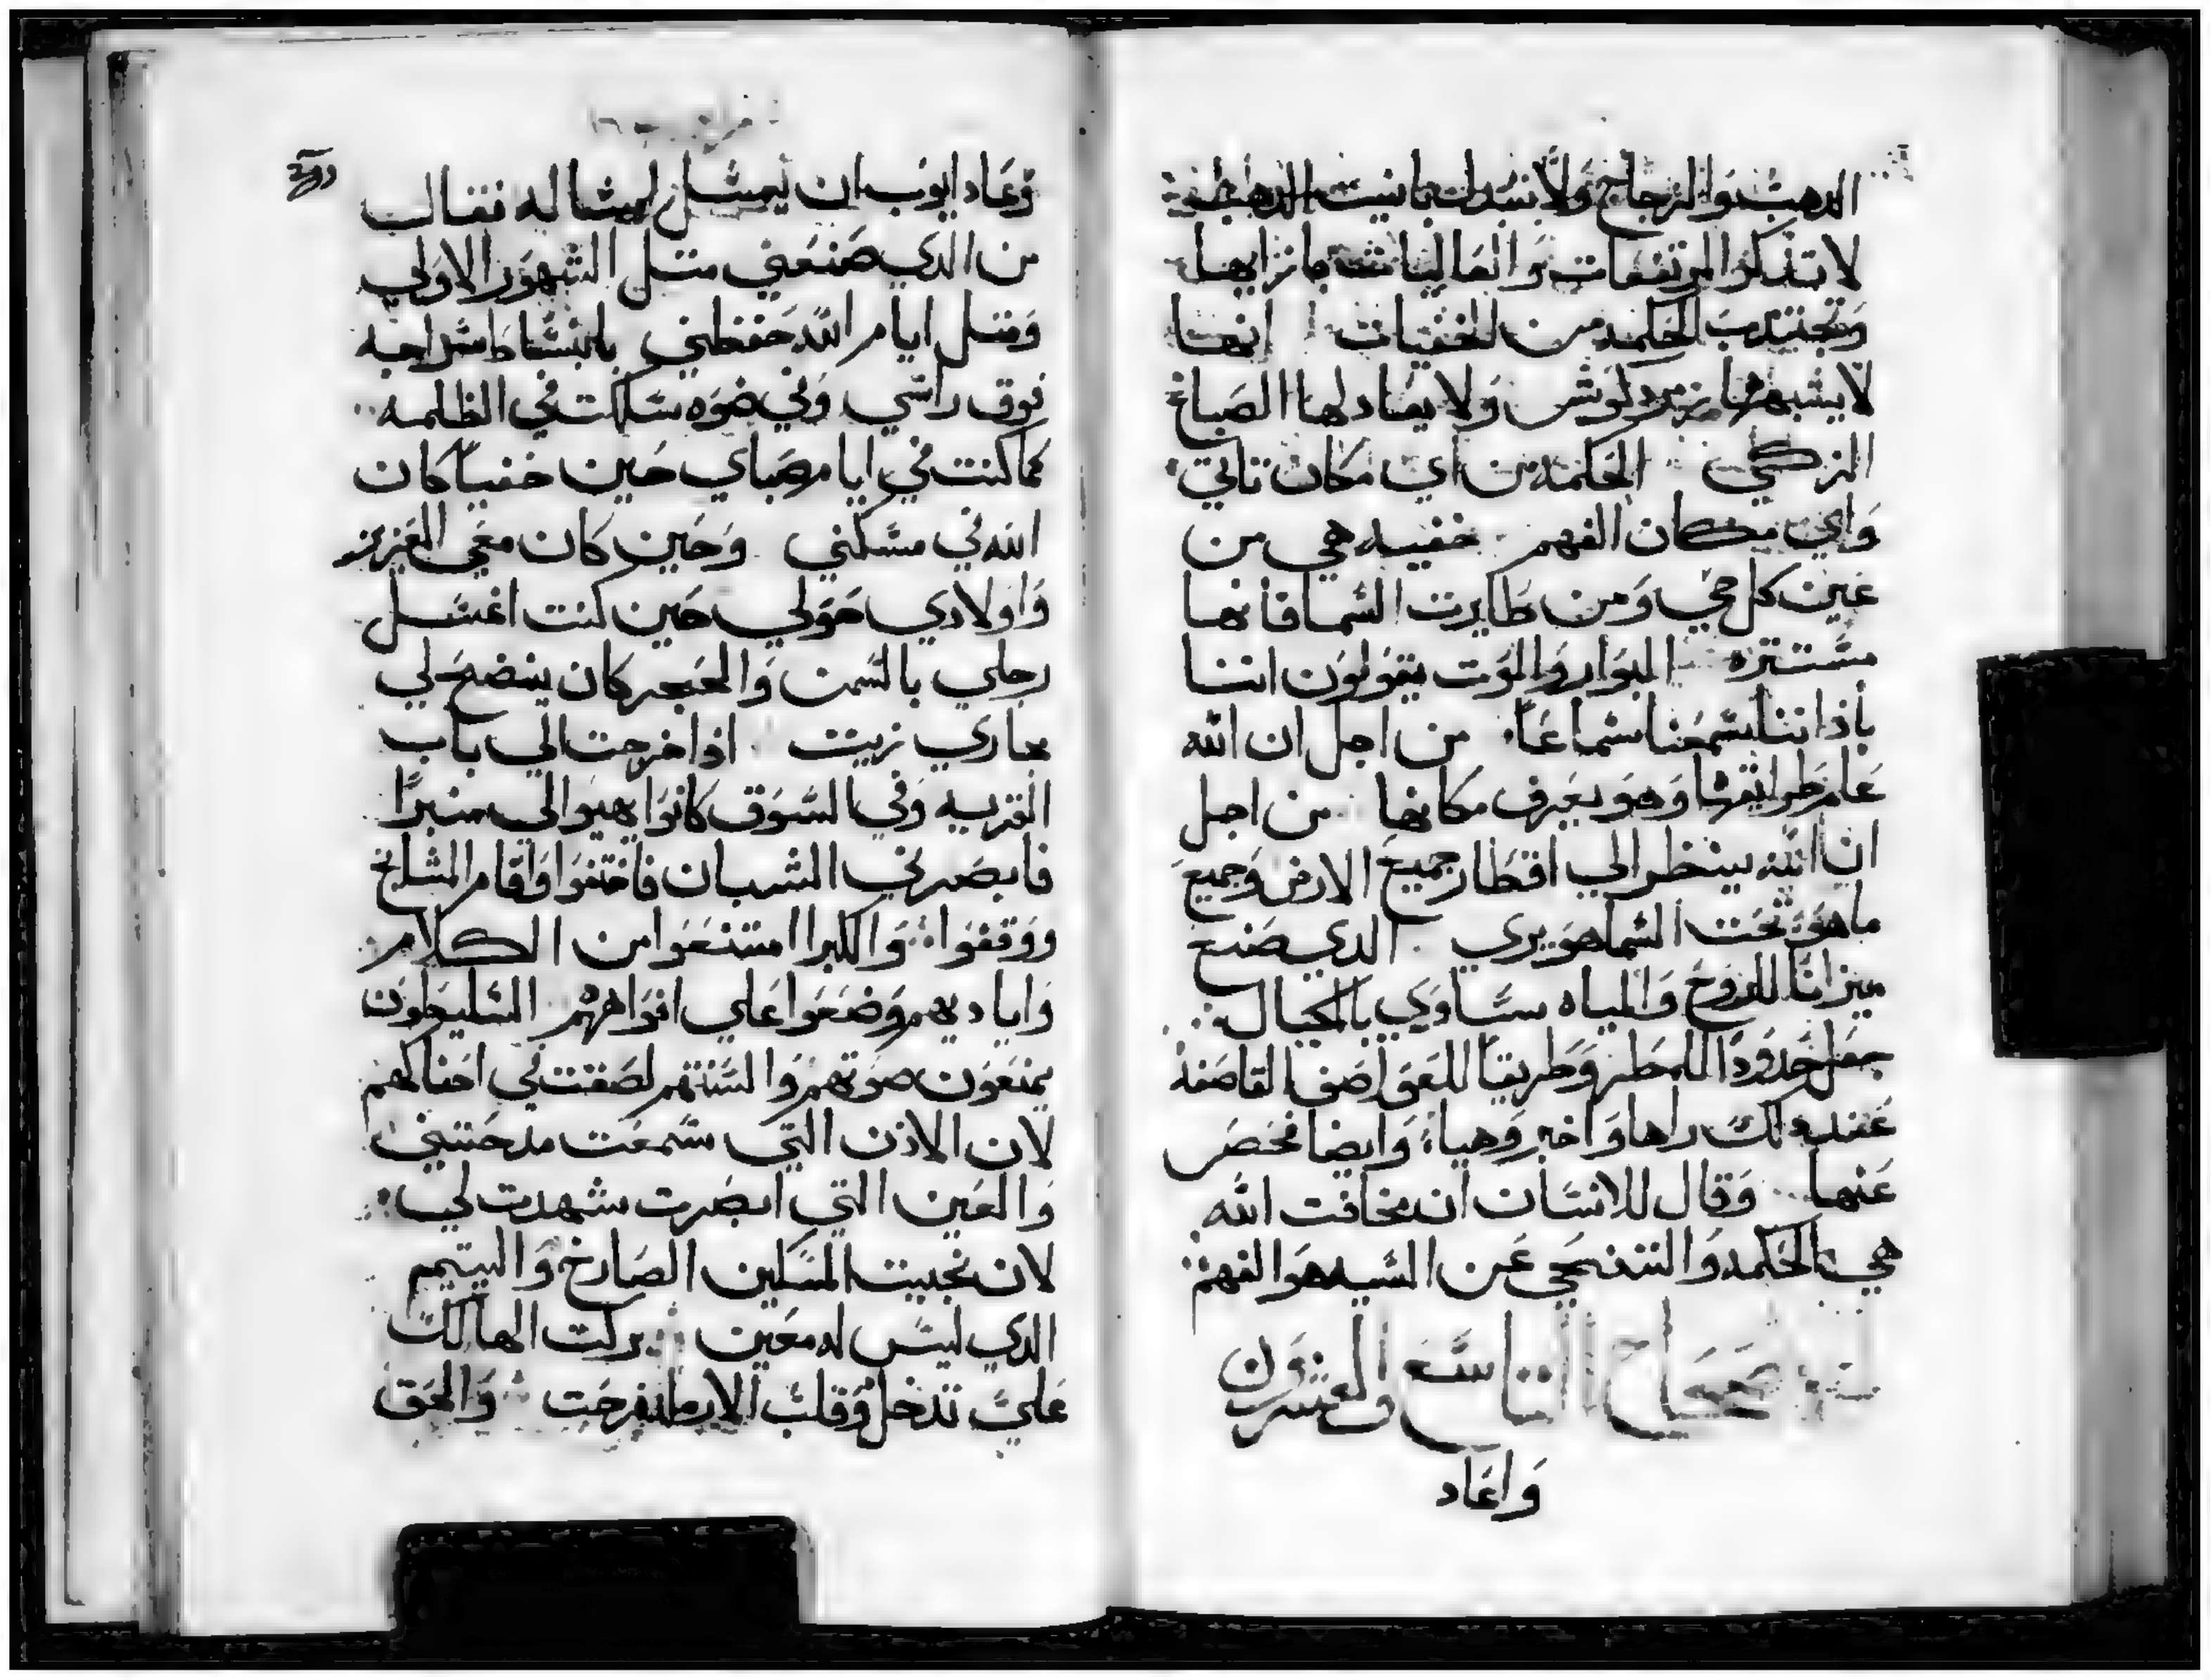 الدهب والزجاج ولا تبدلت بانيت الدهب
لا تذكر المرتفعات والعاليات ما نزايها
وتجتدب الحكمه من الخفيات انها
لا يشبهها زمرد كوش ولا يعادلها الصباغ
الزكي الحكمه من اي مكان تاتي
واي مكان الفهم خفيه هي من
عين كل حي ومن طايرت السما فانها
مستتره البوار والموت يقولون اننا
بأذاننا سمعنا سماعا من اجل ان الله
عام طرايقها وهو يعرف مكانها من اجل
ان الله ينظر الي اقطار جميع الارض وجميع
ما هو تحت السما هو يري الدي صنع
ميزانا للروح والمياه ساوي بالمكيال
جعل حدودا للمطر وطريقا للعواصف القاصفه
عند دلك راها واخبر وهيا وايضا فحص
عنها وقال للانسان ان مخافت الله
هي الحكمه والتنحي عن الشر هو الفهم
الاصحاح التاسع والعشرون
واعاد
وعاد ايوب ان يمثل امثاله فقال
من الدي صنعني متل الشهور الاولي
ومتل ايام الله حفظني بانبساط سراجه
فوق راسي وفي ضوه سلكت في الظلمه
كما كنت في ايام صباي حين خفيا كان
الله في مسكني وحين كان معي العزيز
واولادي حولي حين كنت اغسل
رجلي بالسمن والحجر كان ينضح لي
معاري زيت اذا خرجت الي باب
القريه وفي السوق كانوا يهيوا لي منبرا
فابصرني الشبان فاختفوا واقام المشايخ
ووقفوا والكبرا امتنعوا من الكلام
واياديهم وضعوا علي افواههم السليطون
يمنعون صوتهم والسنتهم لصقت في احناكهم
لان الاذن التي سمعت مدحتني
والعين التي ابصرت شهدت لي
لان نجيت المسكين الصارخ واليتيم
الدي ليس له معين بركت الهالك
علي تدخل وقلب الارمله فرحت والحق